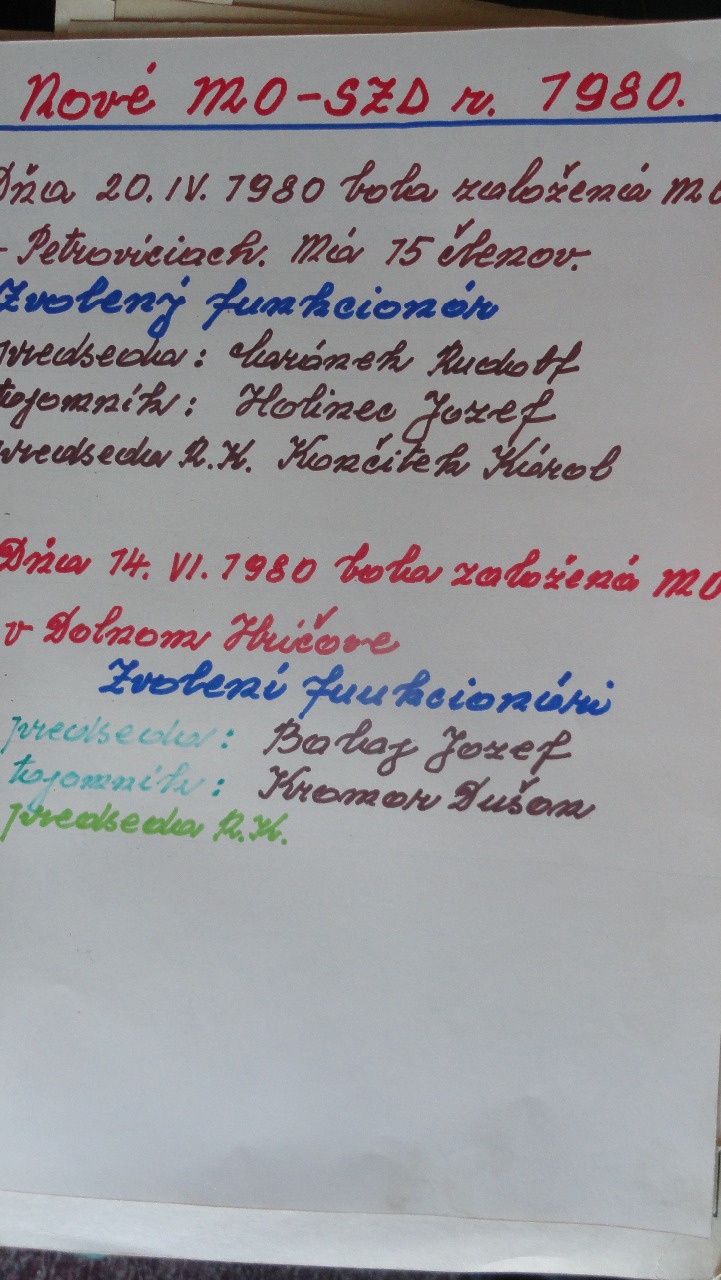 Nové MO-SZD r. 1980.
Dňa 20. IV. 1980 bola založená MO
- Petroviciach. Má 15 členov.
Zvolený funkcionár
predseda: Rudolf
tajomník: Holinec Jozef
predseda R.K. Končitek Károl
Dňa 14. VI. 1980 bola založená MO
v Dolnom Hričove
Zvolení funkcionári
predseda: Jozef
tajomník: Kramar Dušan
predseda R.K.